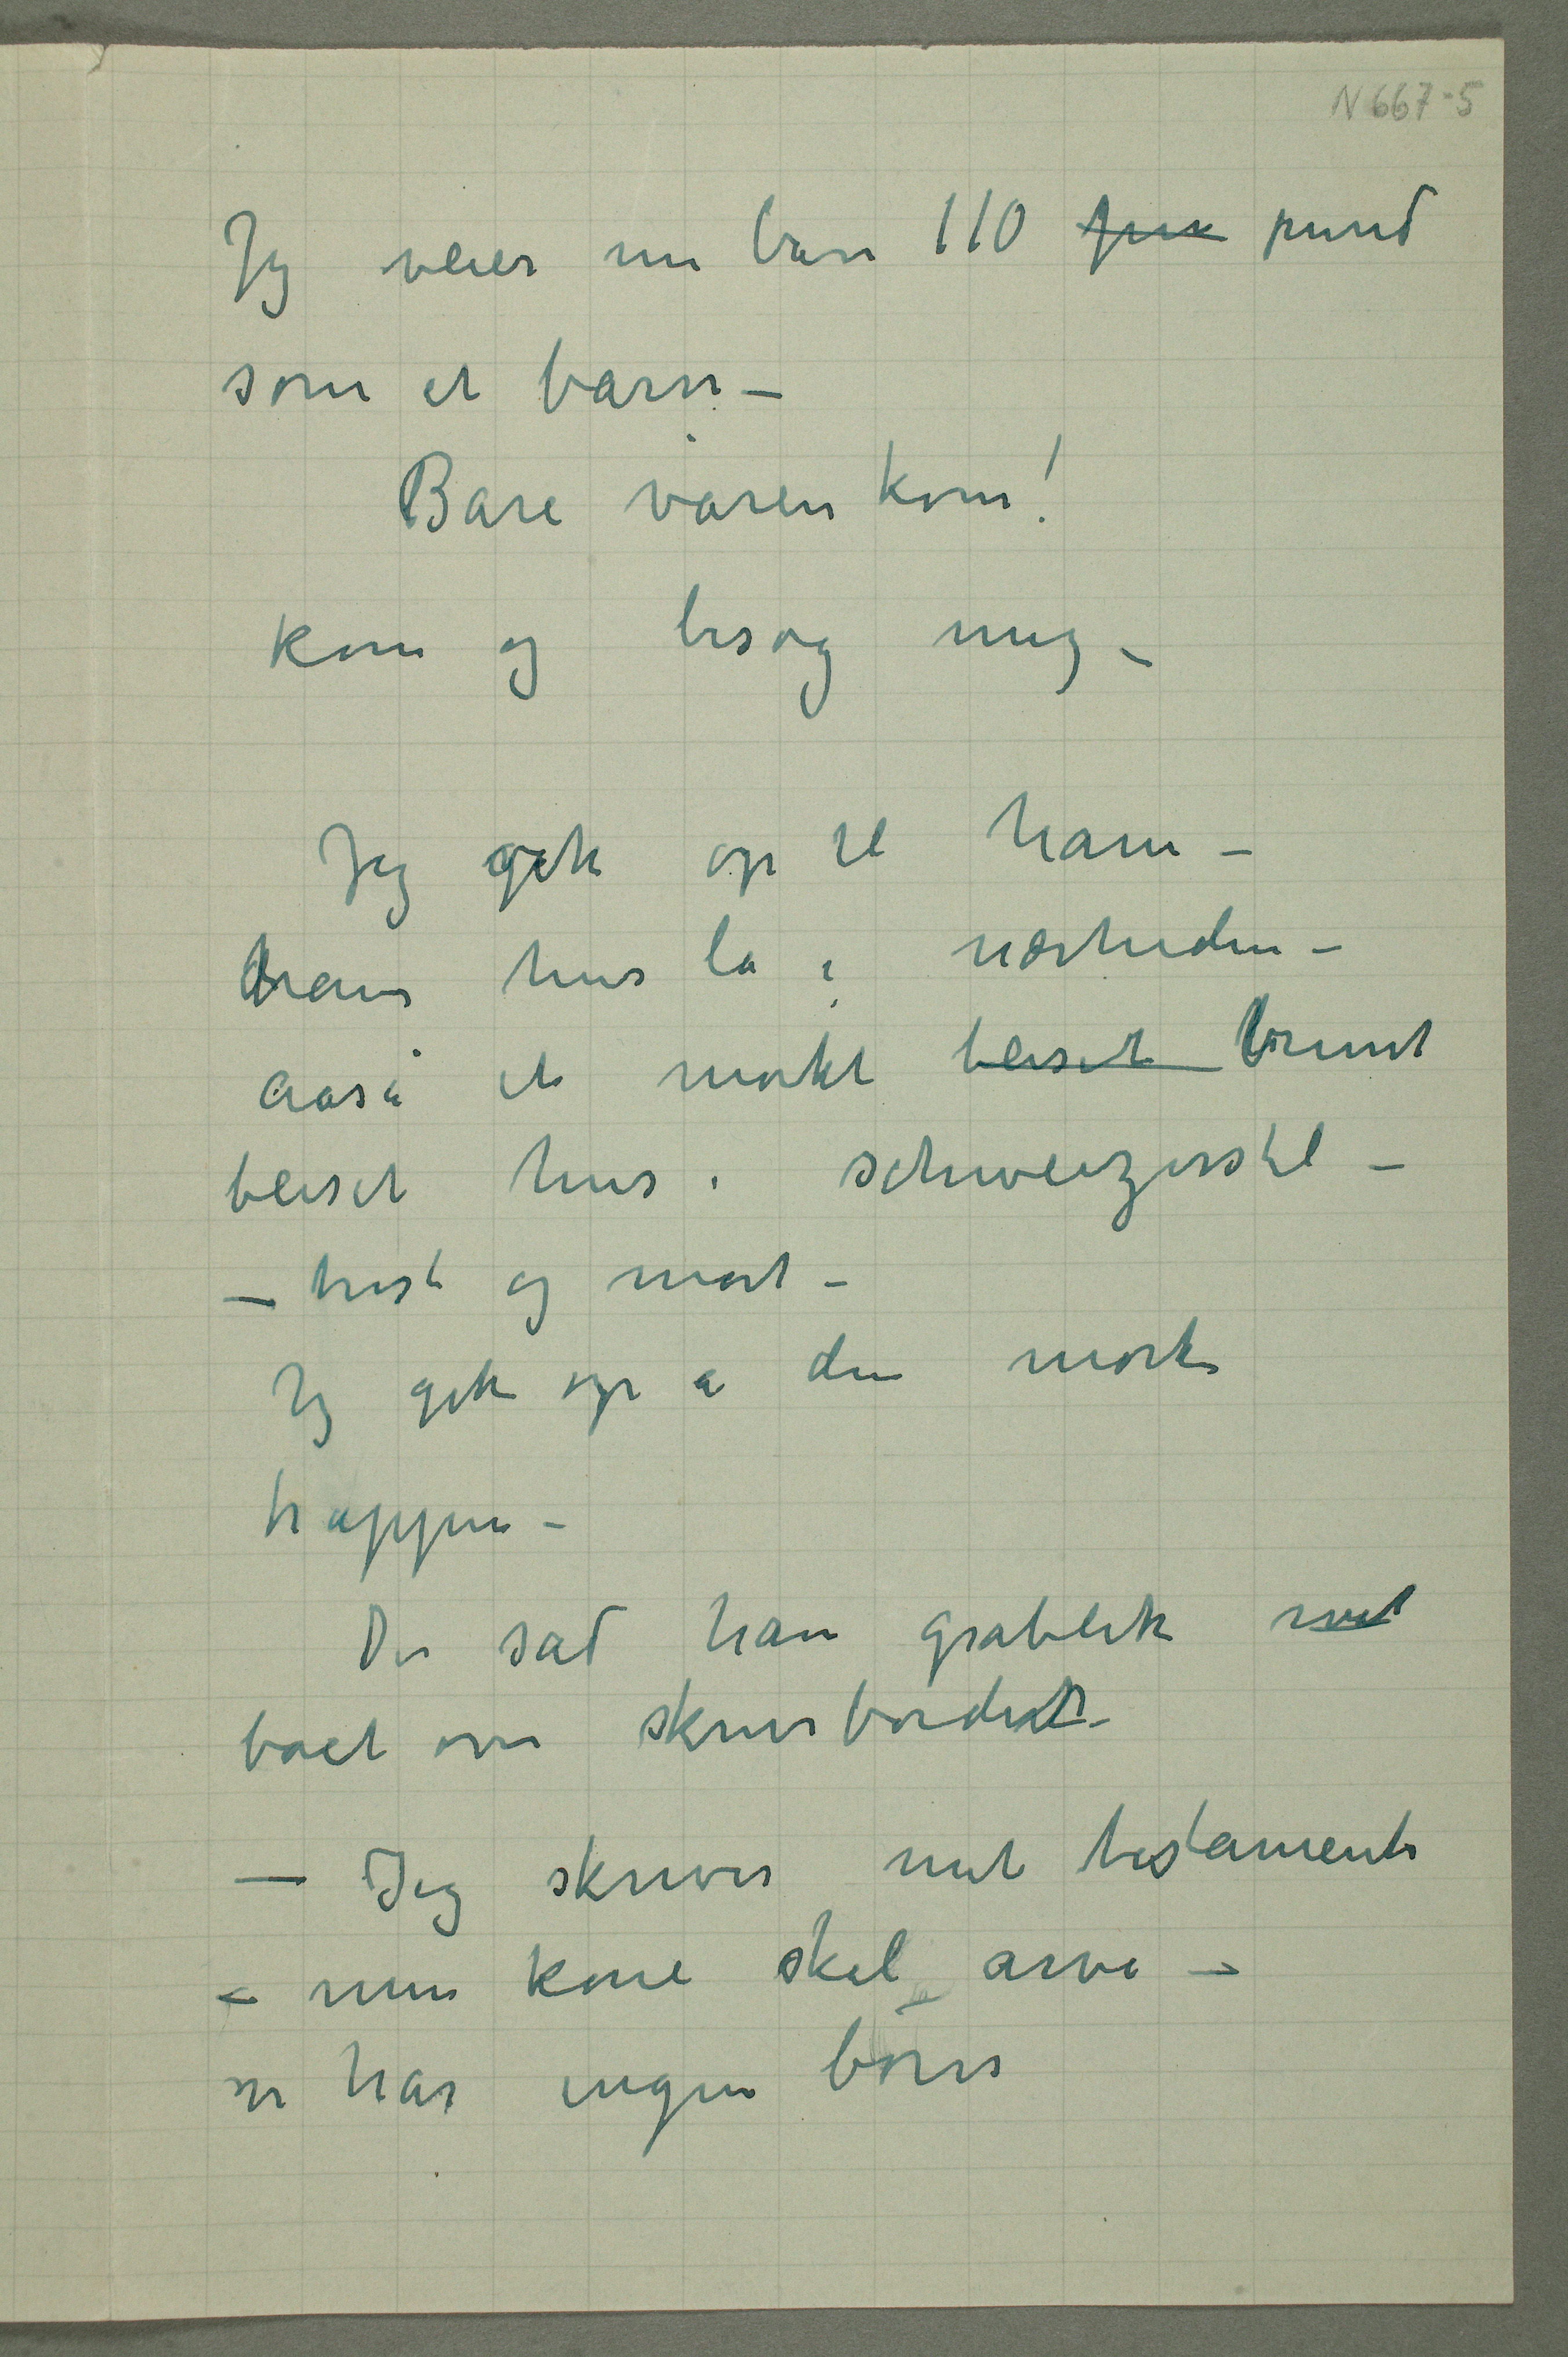 N 667-5
Jeg veier nu bare 110 pun pund
som et barn –
Bare våren kom!
Kom og besøg mig –
Jeg gik op til ham –
hans hus lå i nærheden –
også et mørkt beiset brunt
beiset hus i schweizerstil –
– trist og mørt –
Jeg gik op a den mørke
trappen –
Der sad han gråblek
bøiet over skrivbordet –
– Jeg skriver mit testamente
– min kone skal arve –
vi har ingen børn